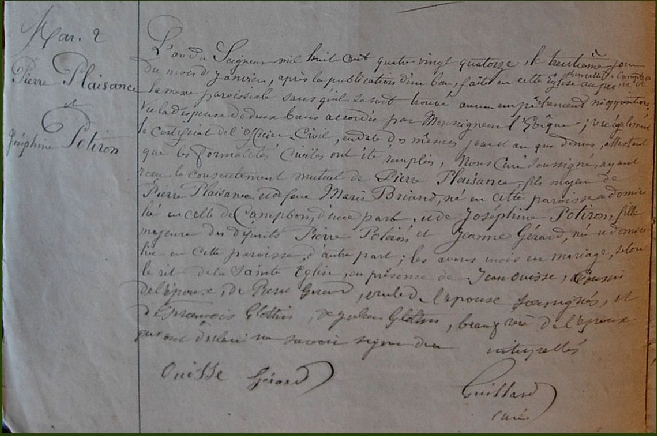 Mar. 2
Pierre Plaisance
et
Joséphine Potiron
L'an du Seigneur mil huit cent quatre vingt quatorze, le trentième jour
du mois de Janvier, après la publication d'un ban, faite en cette église au prône de
la messe paroissiale sans qu'il se soit trouvé aucun empêchement ni opposition
vu la dispense de deux bans accordée par Monseigneur l'Evêque; vu également
le Certificat de l'Officier Civil, en date des mêmes jour et an que dessus, attestant
que les formalités civiles ont été remplies, Nous Curé soussigné, ayant
reçu le consentement mutuel de Pierre Plaisance, fils majeur de
Pierre Plaisance et de feue Marie Briand, né en cette paroisse et domici
lié en celle de Campbon, d'une part, et de Joséphine Potiron, fille
majeure des défunts Pierre Potiron et Jeanne Gérard, née et domici
liée en cette paroisse, d'autre part; les avons unis en mariage, selon
le rit de la Sainte Eglise, en présence de Jean Ouisse, Cousin
de l'époux, de Pierre Gérard, oncle de l'épouse soussignés, et
de François Glottin, de Julien Glottin, beau de l'époux
qui ont déclaré ne savoir signer
Ouisse Gérard
Guillard
curé